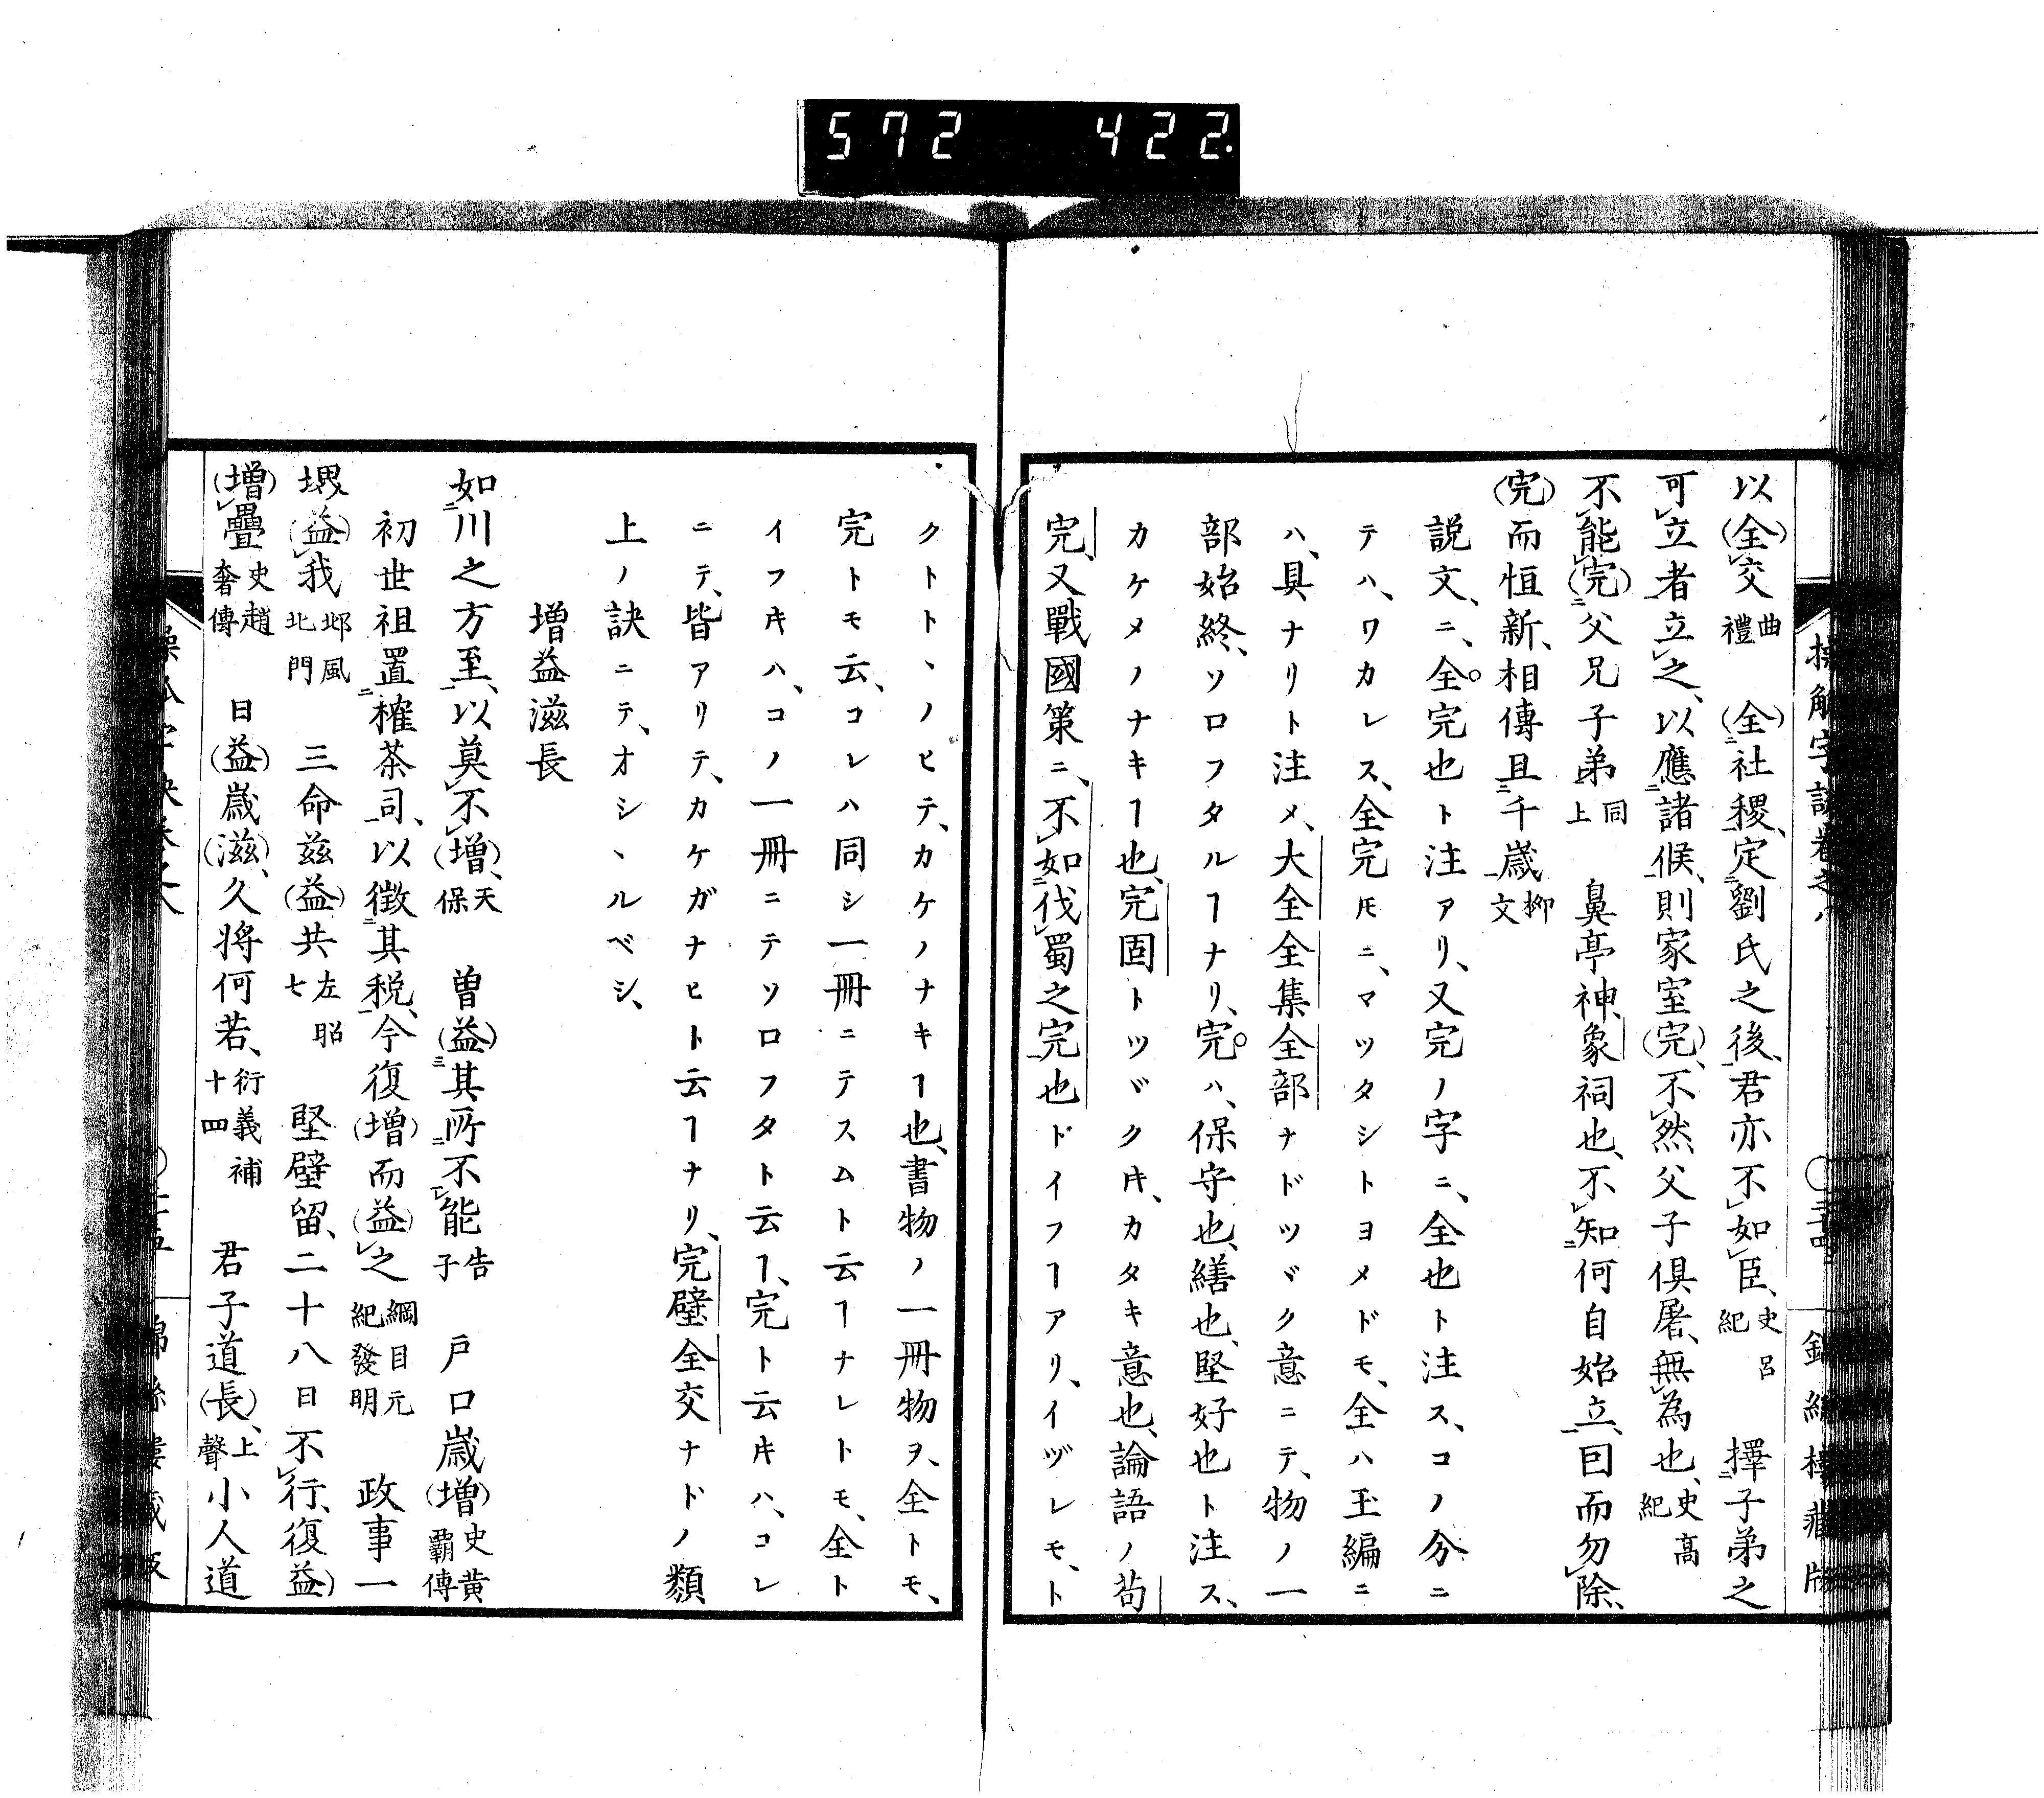 572 422.
以(全)交曲禮 (全)社稷、定劉氏之後、君亦不如臣、史呂紀 擇子弟之
可立者立之、以應諸候、則家室(完)、不然、父子俱屠、無為也、史高紀
不能(完)父兄子弟同上 鼻亭神、象祠也、不知何自始立、因而勿除、
(完)而恒新、相傳且千歳柳文
説文、ニ、全完也ト注アリ、又完ノ字ニ、全也ト注ス、コノ分ニ
テハ、ワカレス、全完𪜈ニ、マツタシトヨメドモ、全ハ玉編ニ
ハ、具ナリト注メ、大全全集全部ナドツヾク意ニテ、物ノ一
部始終、ソロフタルヿナリ、完ハ、保守也、繕也、堅好也ト注ス、
カケメノナキヿ也、完固トツヾクキ、カタキ意也、論語ノ苟
完、又戰國策ニ、不如伐蜀之完也ドイフヿアリ、イヅレモ、ト
クトヽノヒテ、カケノナキヿ也、書物ノ一冊物ヲ、全トモ、
完トモ云、コレハ同シ一冊ニテスムト云ヿナレトモ、全ト
イフキハ、コノ一冊ニテソロフタト云ヿ、完ト云キハ、コレ
ニテ、皆アリテ、カケガナヒト云ヿナリ、完璧全交ナドノ類
上ノ訣ニテ、オシヽルベシ、
増益滋長
如川之方至、以莫不(増)、天保 曽(益)其所不能告子 戸口歳(増)史黄覇傳
初世祖置榷茶司、以徴其税、今復(増)而(益)之綱目元紀發明 政事一
堺(益)我邶風北門 三命茲(益)共左昭七 堅壁留、二十八日不行、復益)
(増)壘史趙奢傳 日(益)歳(滋)、久将何若、衍義補十四 君子道(長)、上聲小人道